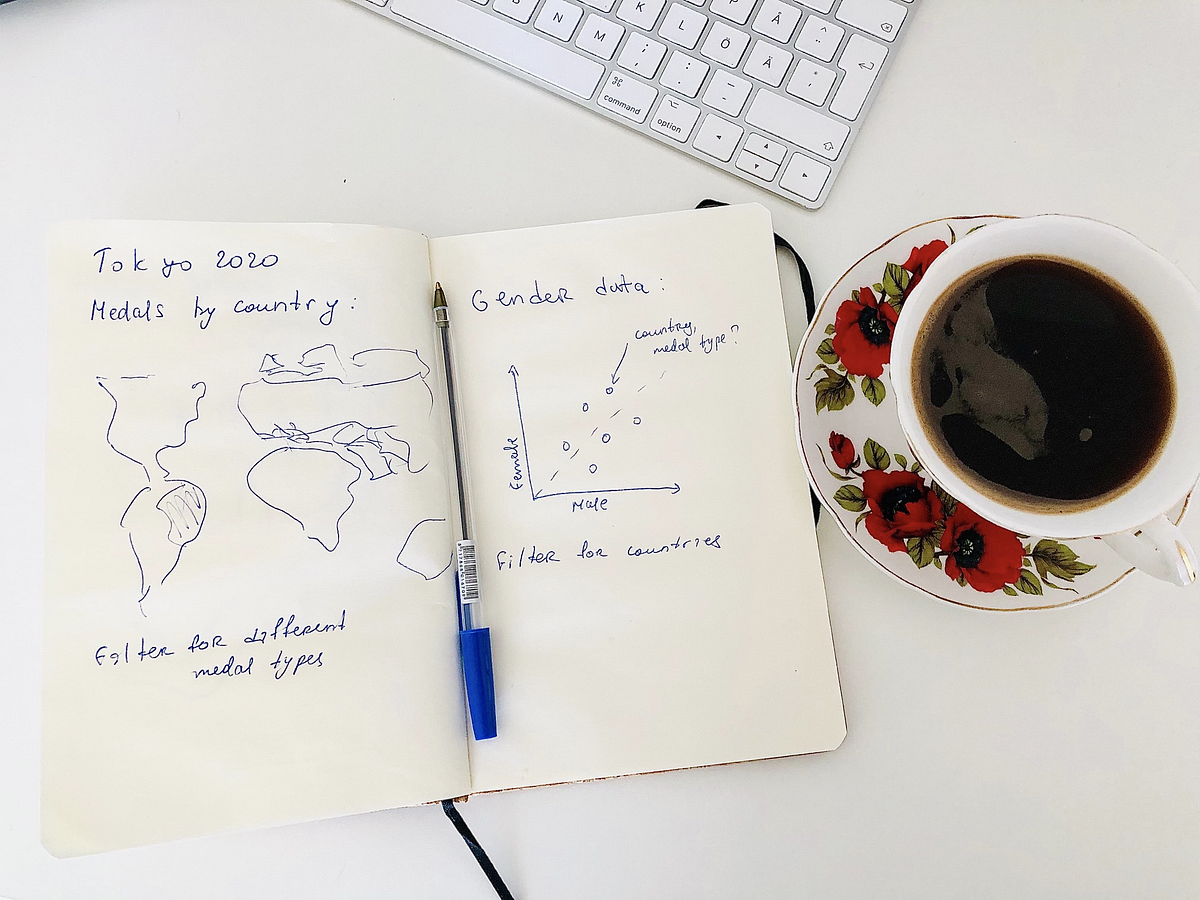 B N M K L Ö P Ä Å ^ ¨
; , : . _ - * '
⌘ command
⌥ option
Tokyo 2020
Medals by country:
Filter for different
medal types
Gender data:
country,
medal type?
Female
Male
Filter for countries